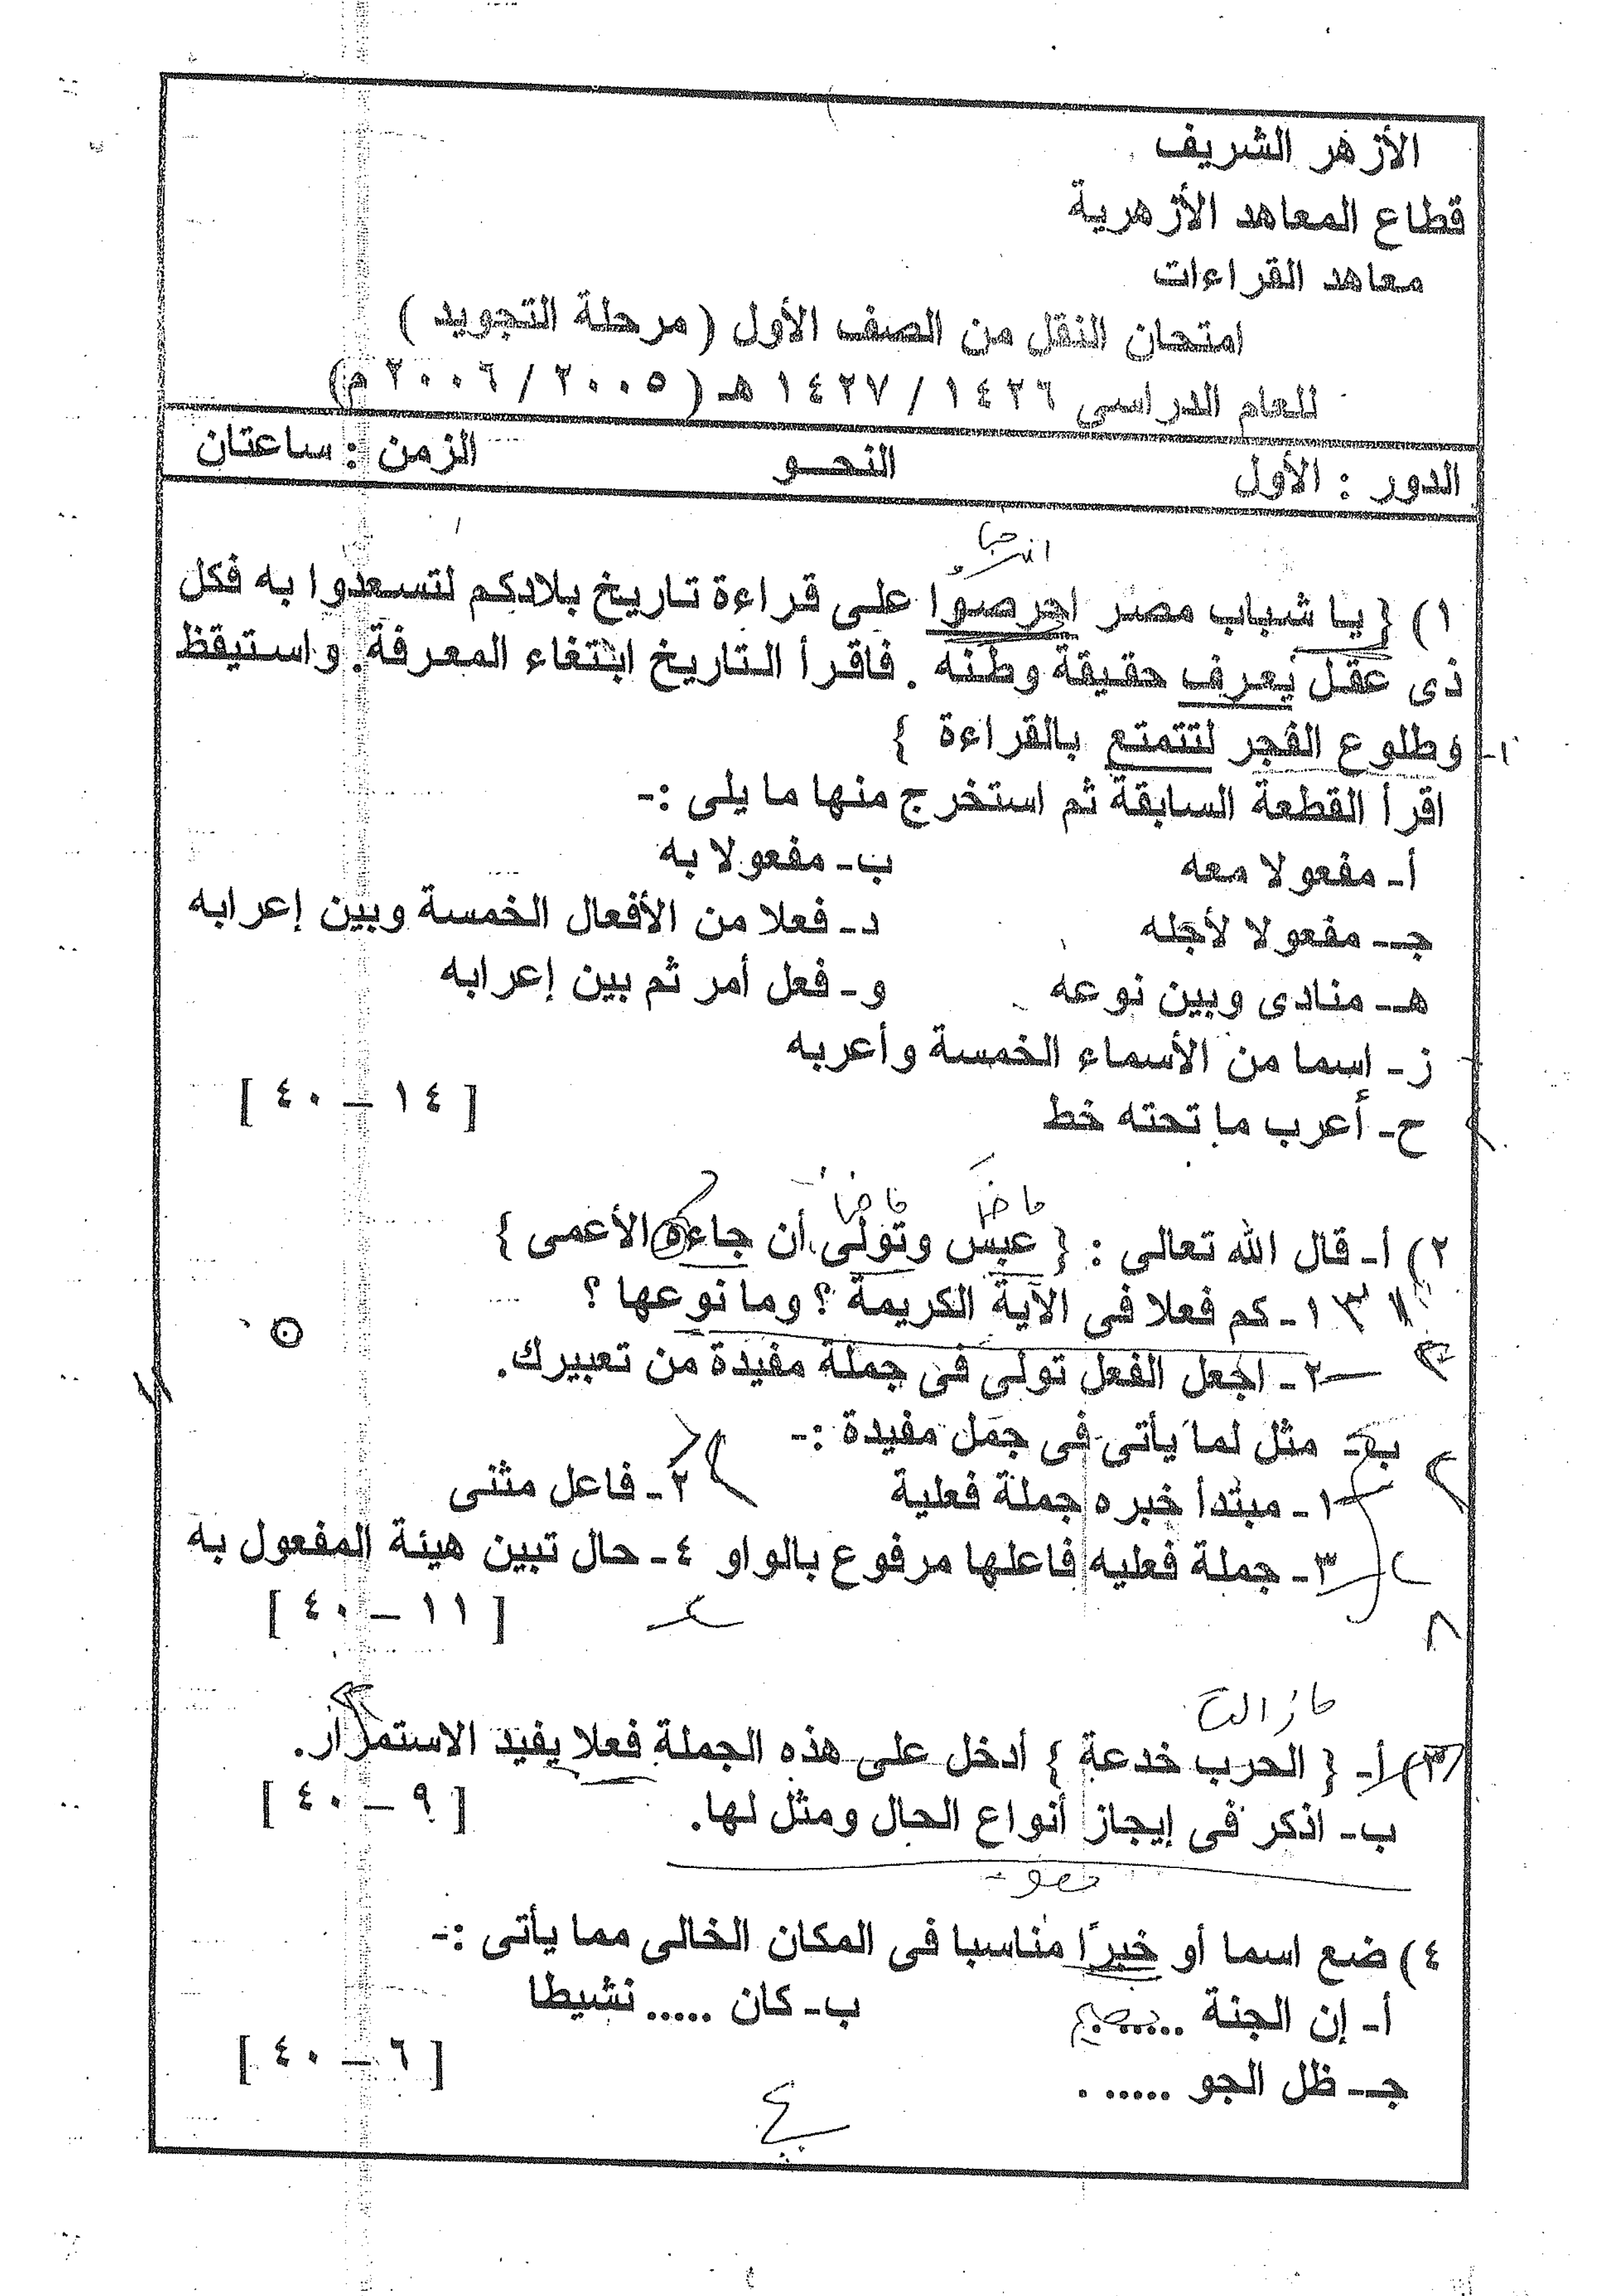 الأزهر الشريف
قطاع المعاهد الأزهرية
معاهد القراءات
امتحان النقل من الصف الأول ( مرحلة التجويد )
للعام الدراسى ١٤٢٦ / ١٤٢٧ هـ ( ٢٠٠٥ / ٢٠٠٦ م)
الدور : الأول النحـــو الزمن : ساعتان
١) { يا شباب مصر احرصوا على قراءة تاريخ بلادكم لتسعدوا به فكل
ذى عقل يعرف حقيقة وطنه . فاقرأ التاريخ ابتغاء المعرفة. واستيقظ
وطلوع الفجر لتتمتع بالقراءة }
اقرأ القطعة السابقة ثم استخرج منها ما يلى :-
أ- مفعولا معه ب- مفعولا به
جـ- مفعولا لأجله د- فعلا من الأفعال الخمسة وبين إعرابه
هـ- منادى وبين نوعه و- فعل أمر ثم بين إعرابه
ز- اسما من الأسماء الخمسة وأعربه
ح- أعرب ما تحته خط [ ١٤ – ٤٠ ]
ماض ماض
٢) أ- قال الله تعالى : { عبس وتولى أن جاءه الأعمى }
١- كم فعلا فى الآية الكريمة ؟ وما نوعها ؟
٢- اجعل الفعل تولى فى جملة مفيدة من تعبيرك.
ب- مثل لما يأتى فى جمل مفيدة :-
١- مبتدأ خبره جملة فعلية ٢- فاعل مثنى
٣- جملة فعليه فاعلها مرفوع بالواو ٤- حال تبين هيئة المفعول به
[ ١١ – ٤٠ ]
٨
٣) أ- { الحرب خدعة } أدخل على هذه الجملة فعلا يفيد الاستمرار.
ب- اذكر فى إيجاز أنواع الحال ومثل لها. [ ٩ – ٤٠ ]
٤) ضع اسما أو خبرًا مناسبا فى المكان الخالى مما يأتى :-
أ- إن الجنة ...... ب- كان ..... نشيطا
جـ- ظل الجو ...... . [ ٦ – ٤٠ ]
٤